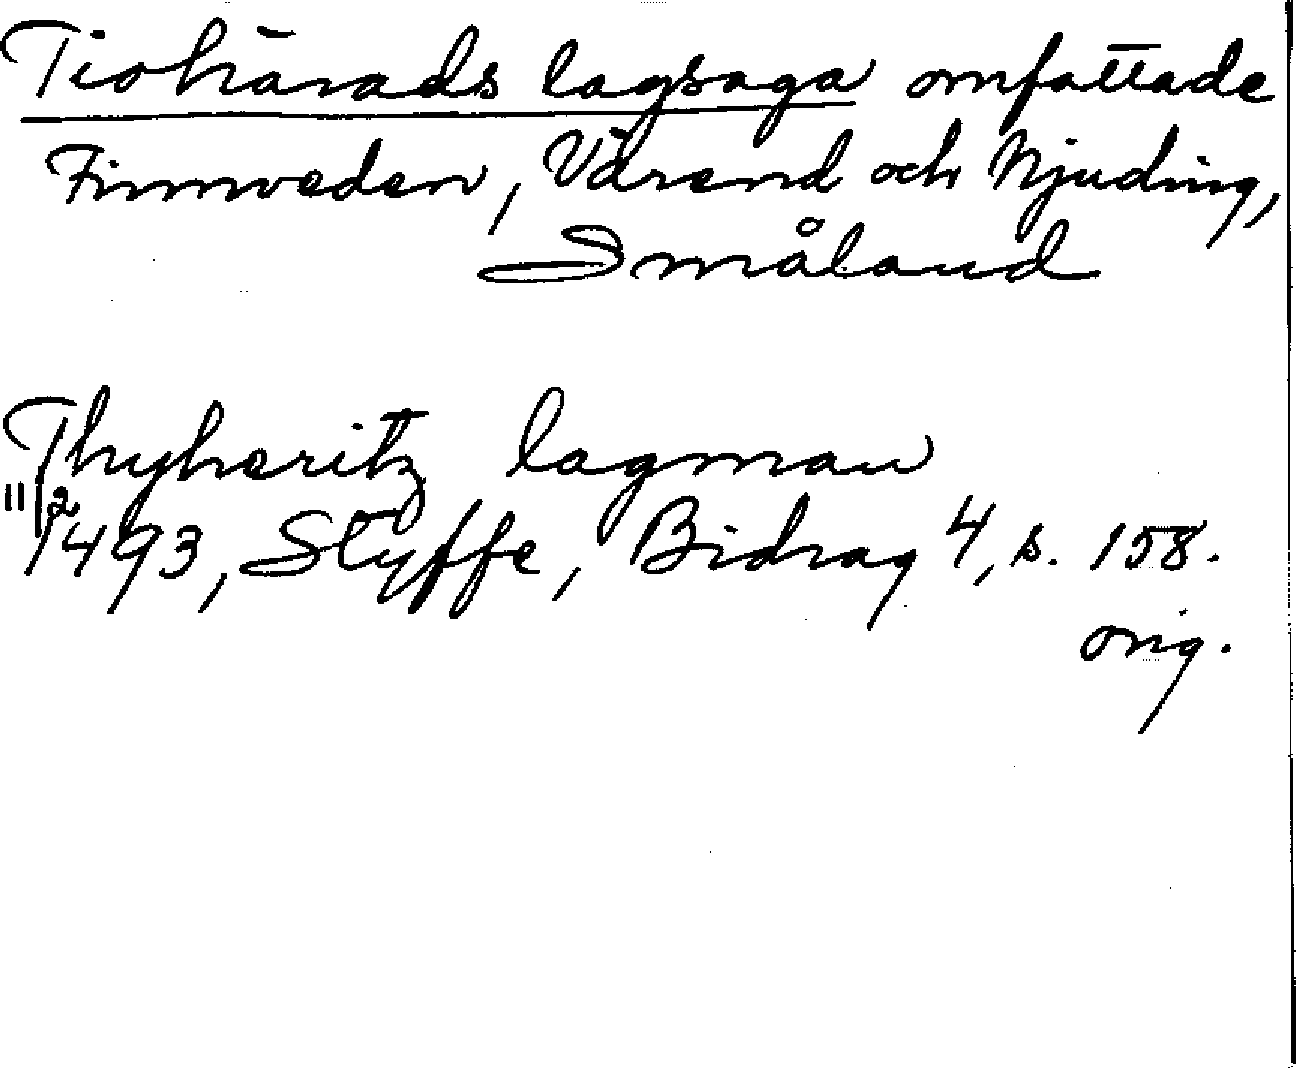 Tiohärads lagsaga omfattade
Finnveden, Värend och Njudung,
Småland
Thyheritz lagman
11/2 1493, Styffe, Bidrag 4, s. 158.
orig.